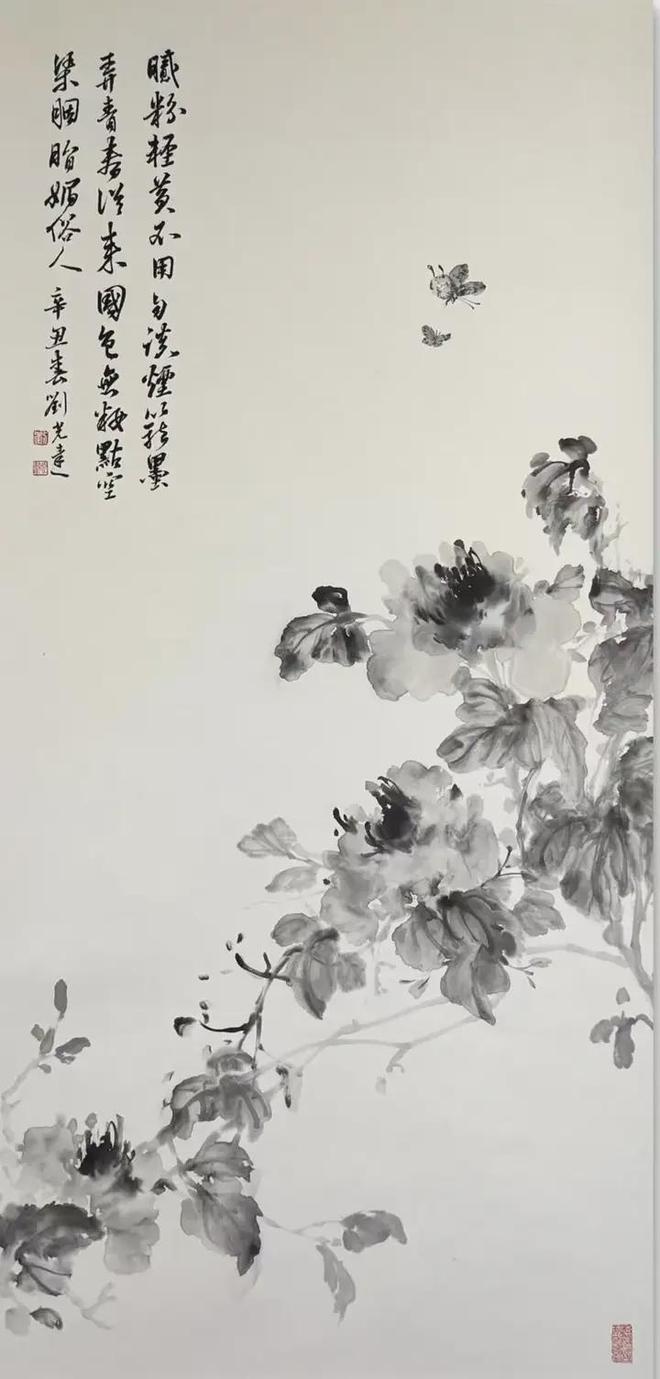 膩粉輕黃不用勻淡煙籠墨
弄青春從來國色無粧點空
染胭脂媚俗人 辛丑春劉光達